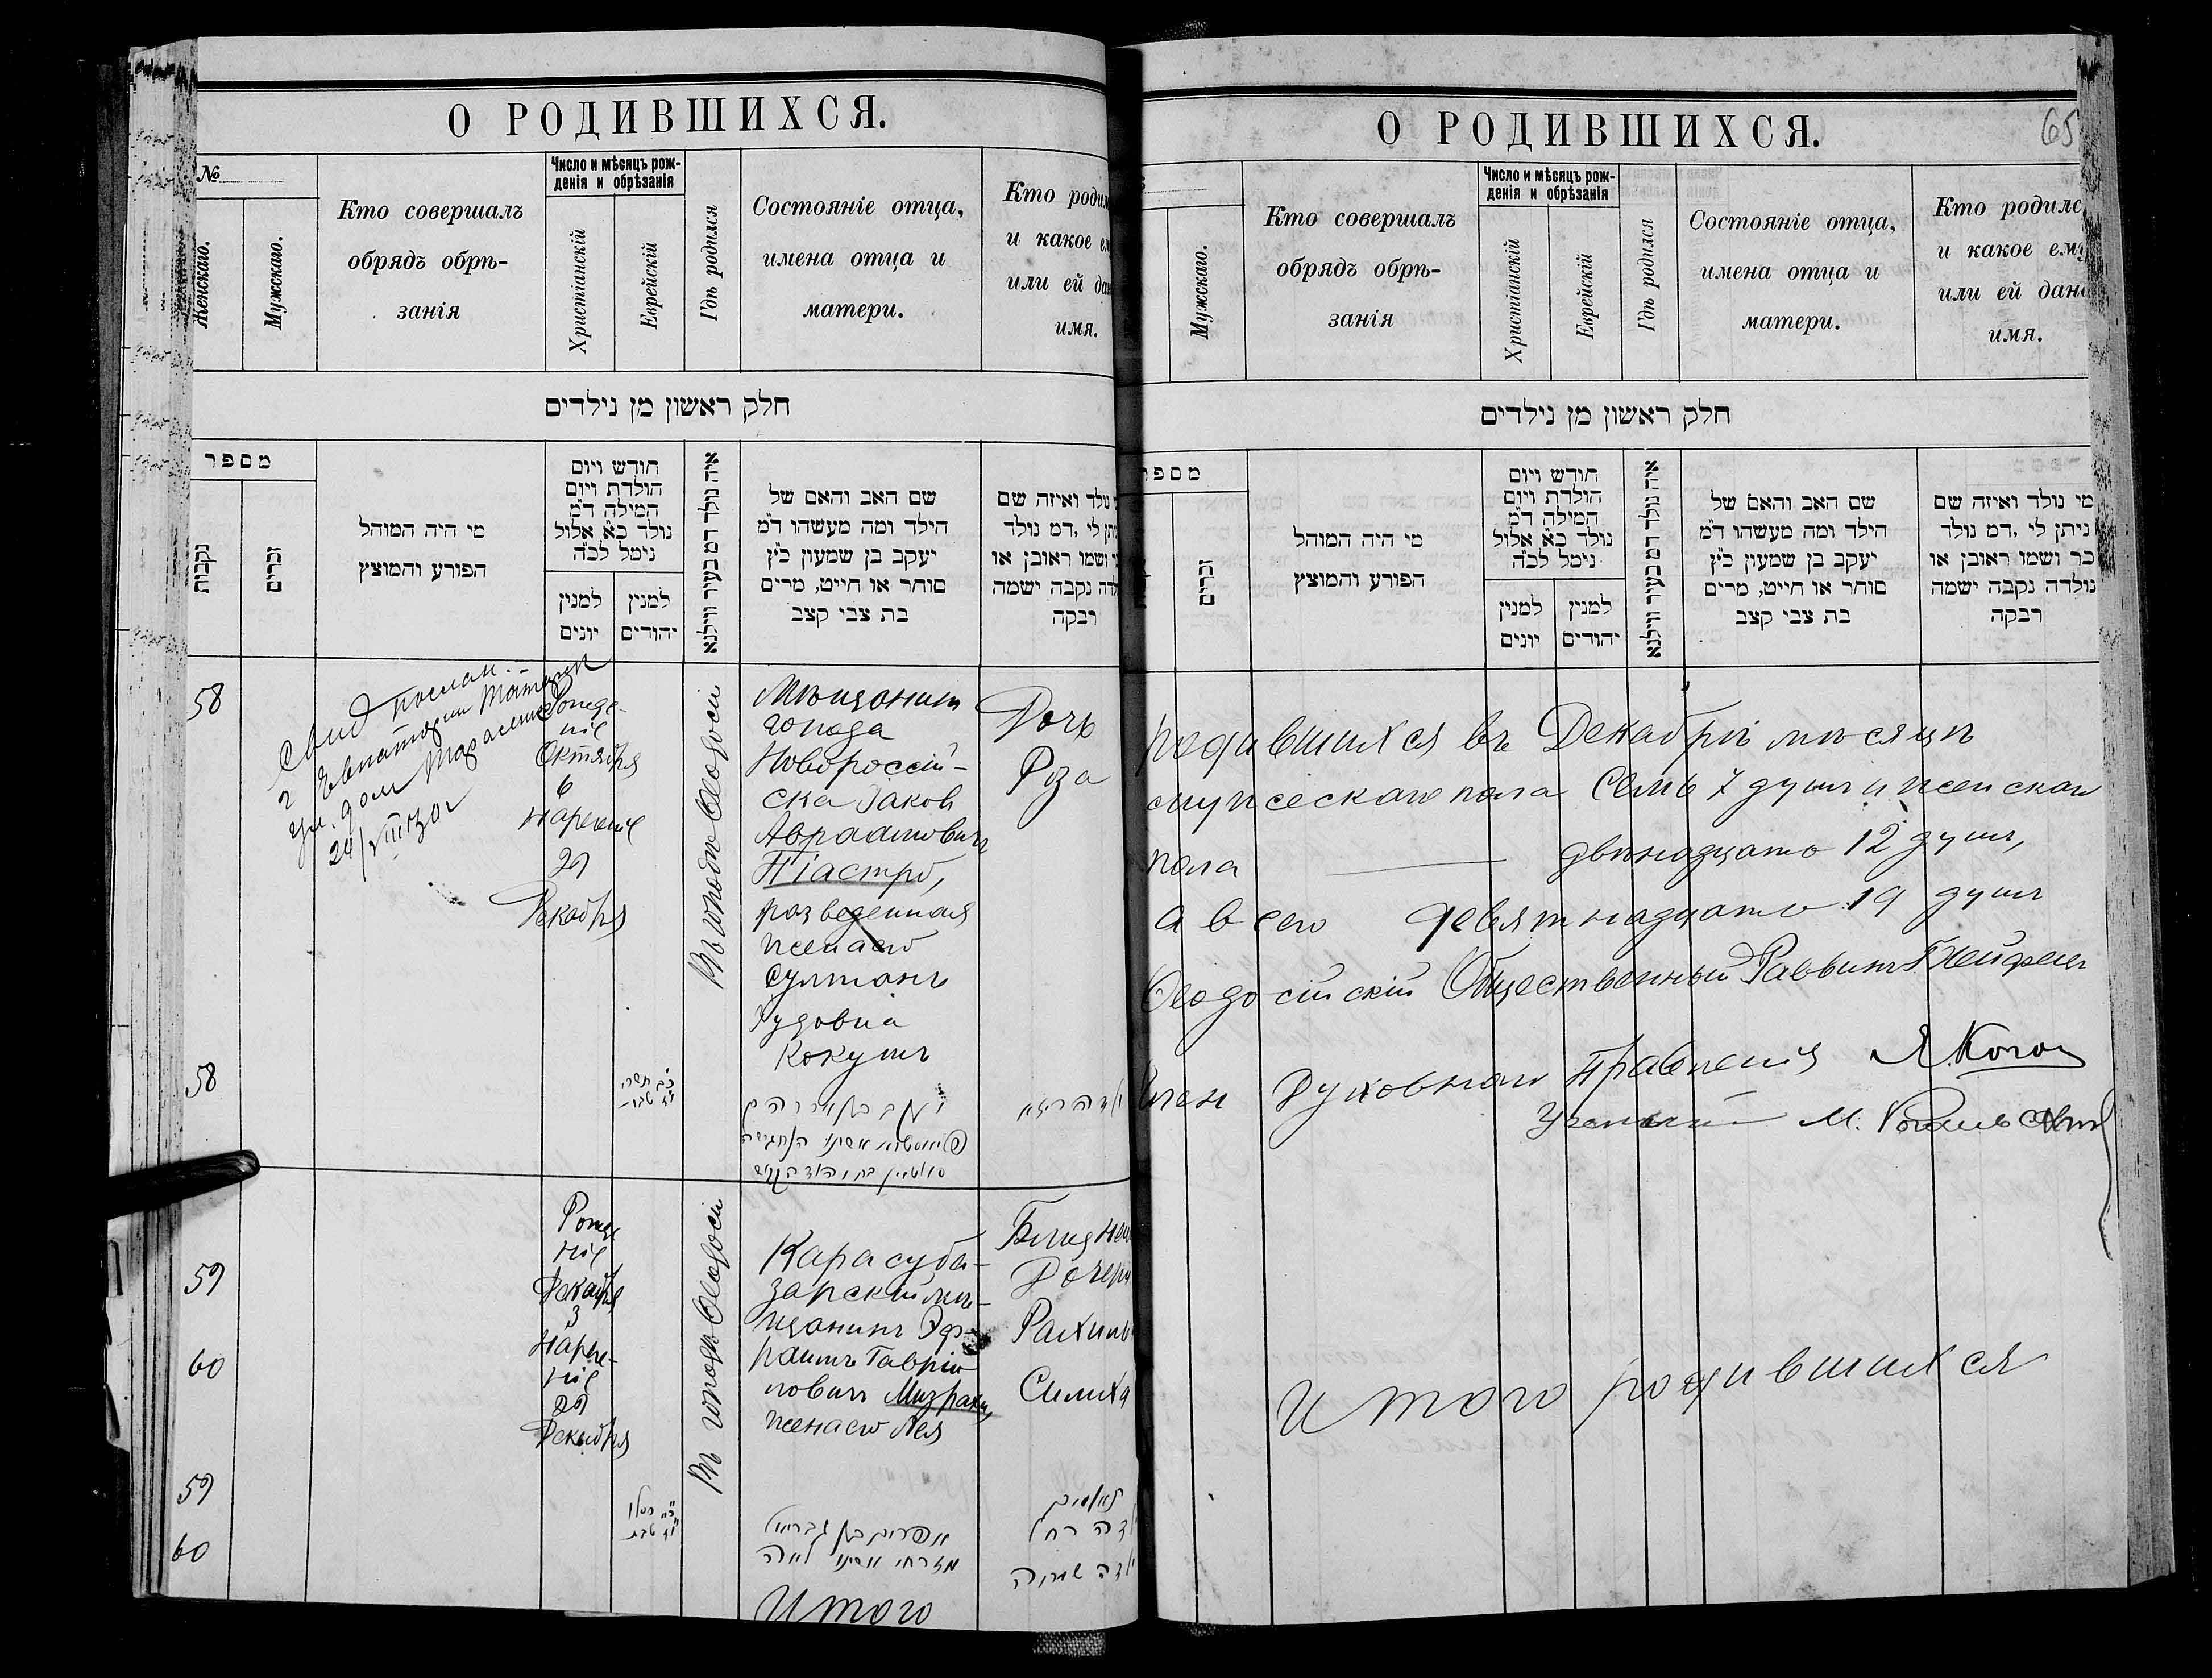 О РОДИВШИХСЯ.
№
Женскаго.
Мужскаго.
Кто совершалъ
обрядъ обрѣ-
занія
Число и мѣсяцъ рож-
денія и обрѣзанія
Христіанскій
Еврейскій
Гдѣ родился
Состояніе отца,
имена отца и
матери.
Кто родил
и какое ем
или ей дан
имя.
חלק ראשון מן נילדים
מספר
נקבות
זכרים
מי היה המוהל
הפורע והמוצץ
חודש ויום
הולדת ויום
המילה ד״מ
נולד כ״א אלול
נימל לכ״ה
למנין
יונים
למנין
יהודים
איה נולד דמ בעיר ווילנא
שם האב והאם של
הילד ומה מעשהו ד״מ
יעקב בן שמעון כ״ץ
סוחר או חייט, מרים
בת צבי קצב
נולד ואיזה שם
תן לי ,דמ נולד
ושמו ראובן או
נקבה ישמה
רבקה
58
Свид послан.
г Евпатории Татарск
ул. дом
24/VIII
Рожде-
ніе
Октября
6
Нареченіе
29
Декабря
Въ городѣ Ѳеодосіи
Мѣщанинъ
города
Новороссій-
ска Іаковъ
Авраамовичъ
Піастро,
разведенная
жена его
Султанъ
Іудовна
Кокушъ
Дочь
Роза
58
59
60
Рожде
ніе
Декабря
3
Нарече-
ніе
29
Декабря
Въ городѣ Ѳеодосіи
Карасуба-
зарскій мѣ-
щанинъ Эф-
раимъ Гавріи
ловичъ Мизрахи,
жена его Лея
Близнец
Дочери
Рахиль
Симха
59
60
אפרים בן גבריאל
מזרחי אשתו לאה
תאומים
ילדה רחל
ילדה שמחה
Итого
О РОДИВШИХСЯ.
65
Мужскаго.
Кто совершалъ
обрядъ обрѣ-
занія
Число и мѣсяцъ рож-
денія и обрѣзанія
Христіанскій
Еврейскій
Гдѣ родился
Состояніе отца,
имена отца и
матери.
Кто родилс
и какое ему
или ей дано
имя.
חלק ראשון מן נילדים
מספר
זכרים
מי היה המוהל
הפורע והמוצץ
חודש ויום
הולדת ויום
המילה ד״מ
נולד כ״א אלול
נימל לכ״ה
למנין
יונים
למנין
יהודים
איה נולד דמ בעיר ווילנא
שם האב והאם של
הילד ומה מעשהו ד״מ
יעקב בן שמעון כ״ץ
סוחר או חייט, מרים
בת צבי קצב
מי נולד ואיזה שם
ניתן לי ,דמ נולד
בר ושמו ראובן או
נולדה נקבה ישמה
רבקה
родившихся въ Декабрѣ мѣсяцѣ
мужескаго пола семь 7 душъ и женскаго
пола — двѣнадцать 12 душъ,
а всего девятнадцать 19 душъ
Ѳеодосійскій Общественный Раввинъ
Членъ Духовнаго Правленія Я. Коген
Ученый М.
Итого родившихся